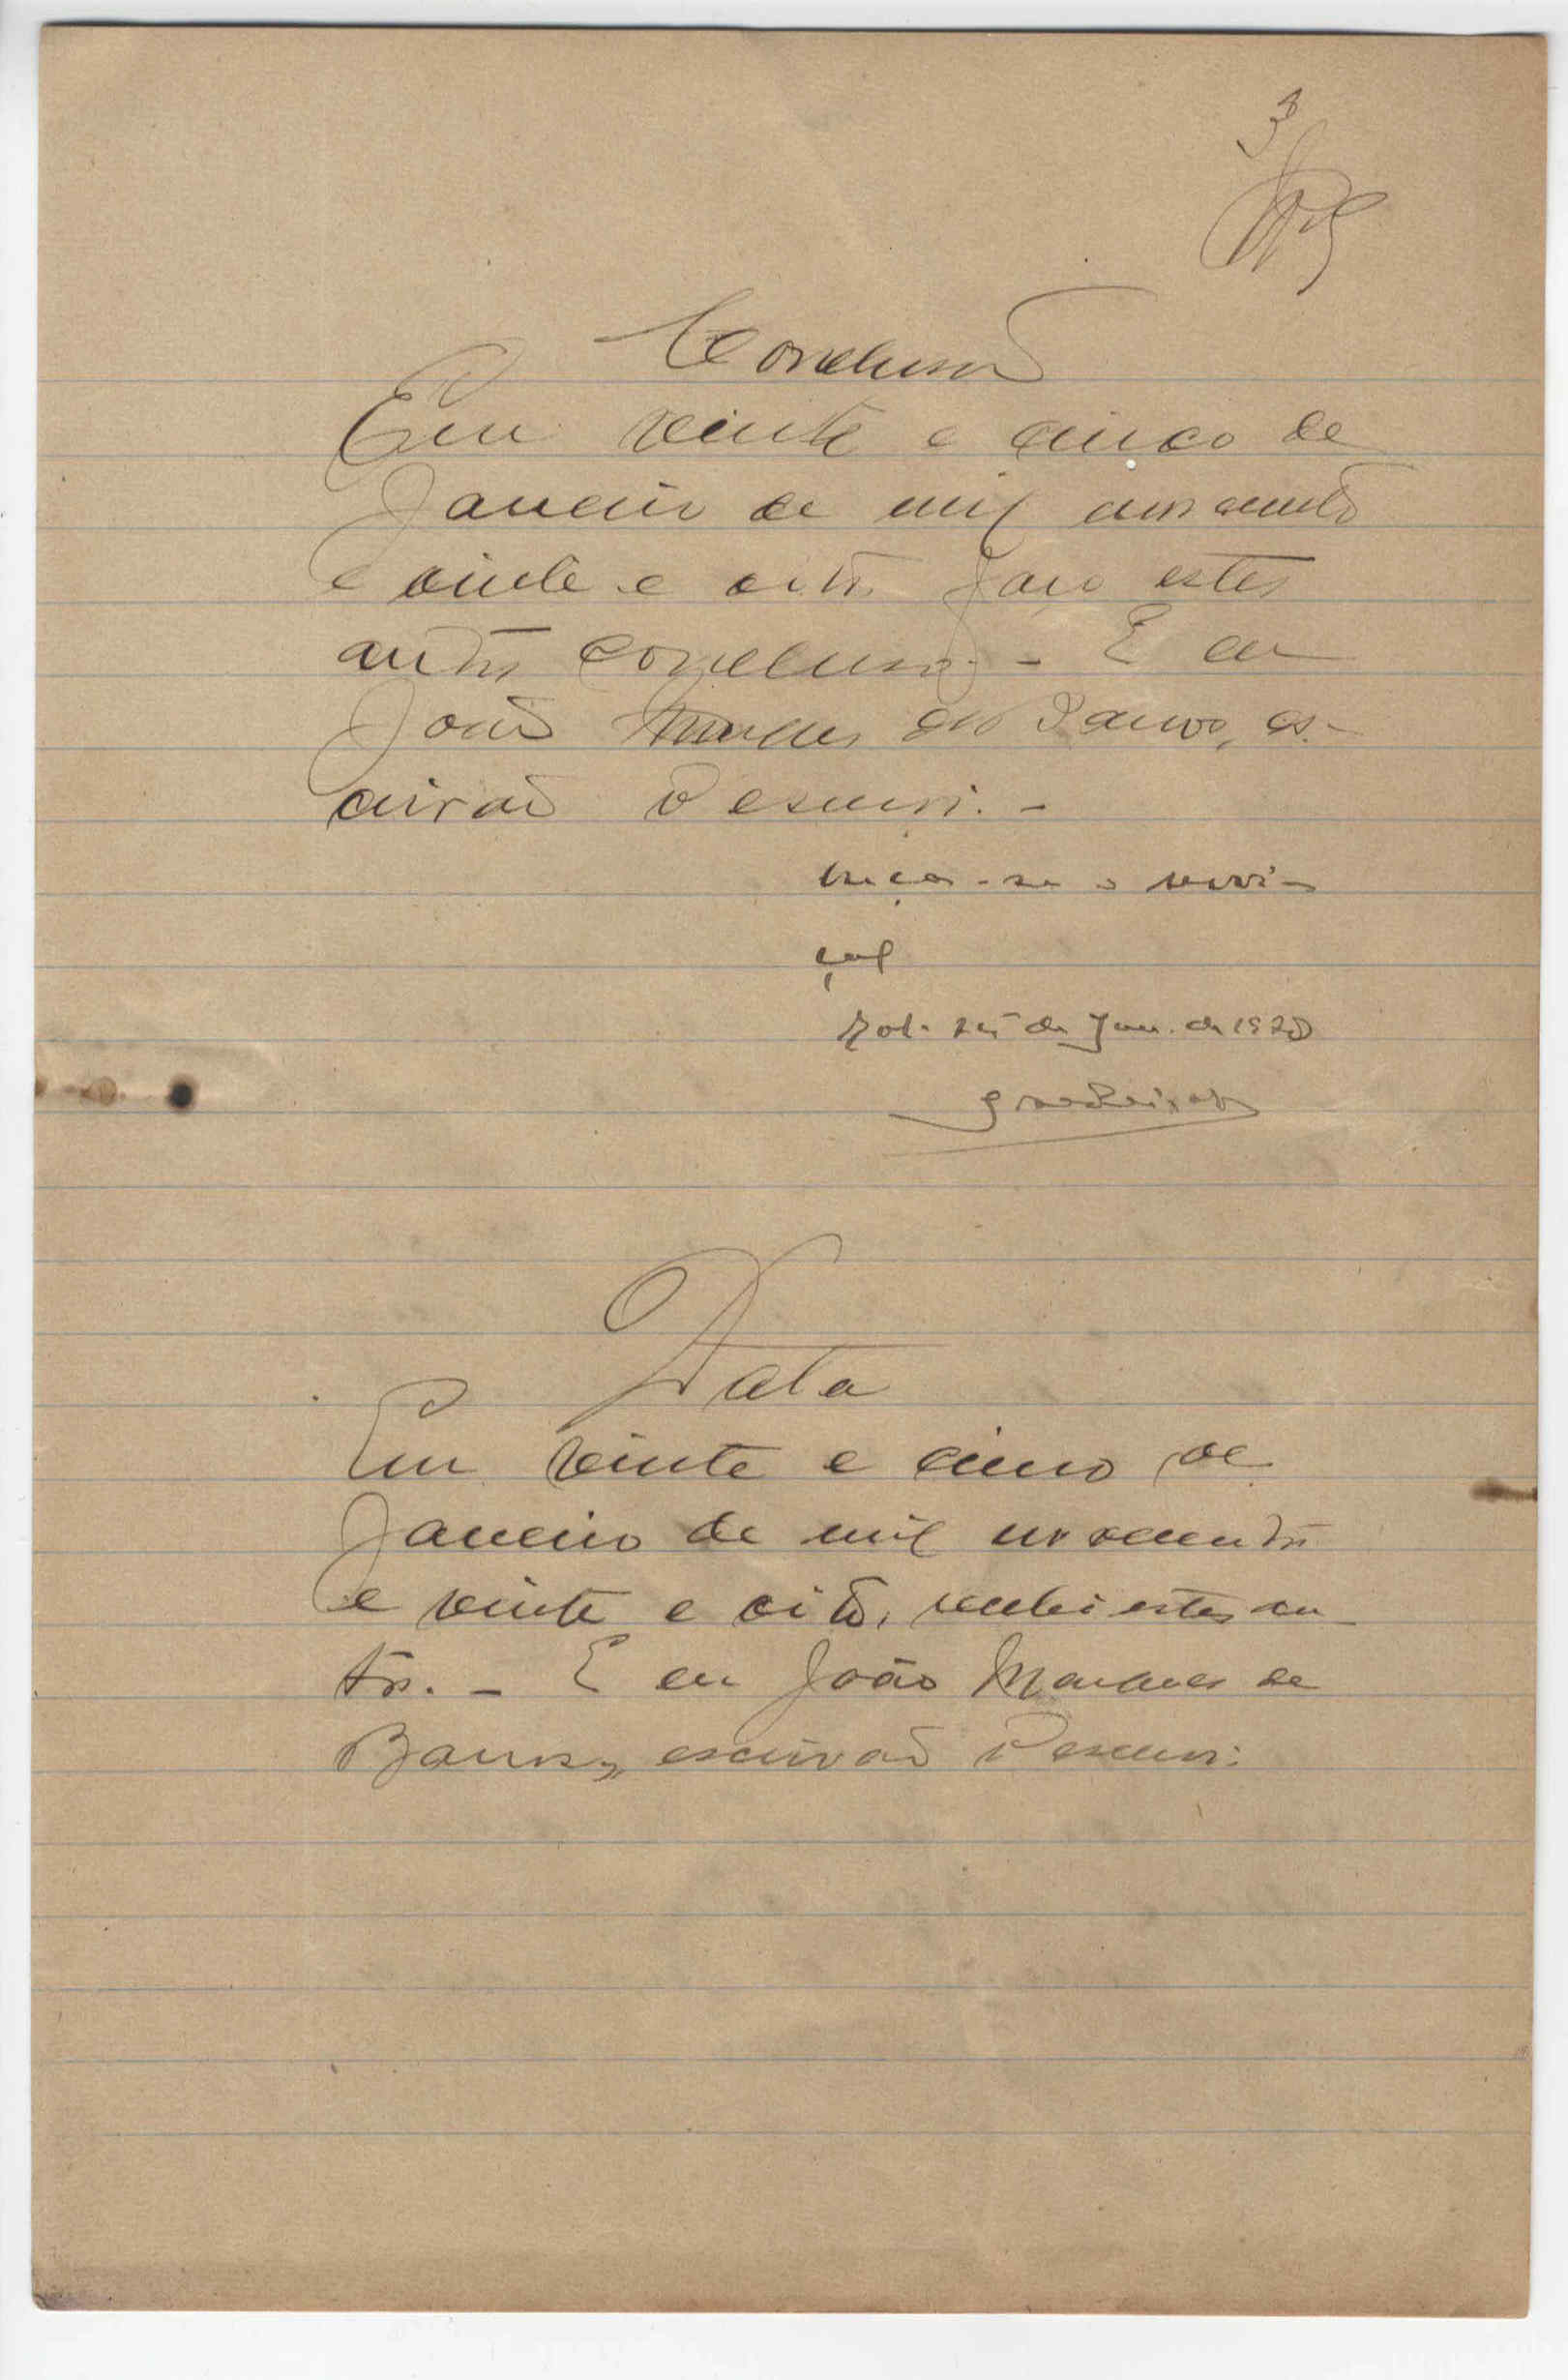 3
Conclusão
Em vinte e cinco de
Janeiro de mil novecentos
e vinte e oito faço estes
autos conclusos. - E eu
João Marques de Barros, es-
crivão o escrevi. -
25 de Jan. de 1928
Data
Em vinte e cinco de
Janeiro de mil novecentos
e vinte e oito, recebi estes au-
tos. - E eu João Marques de
Barros, escrivão o escrevi.